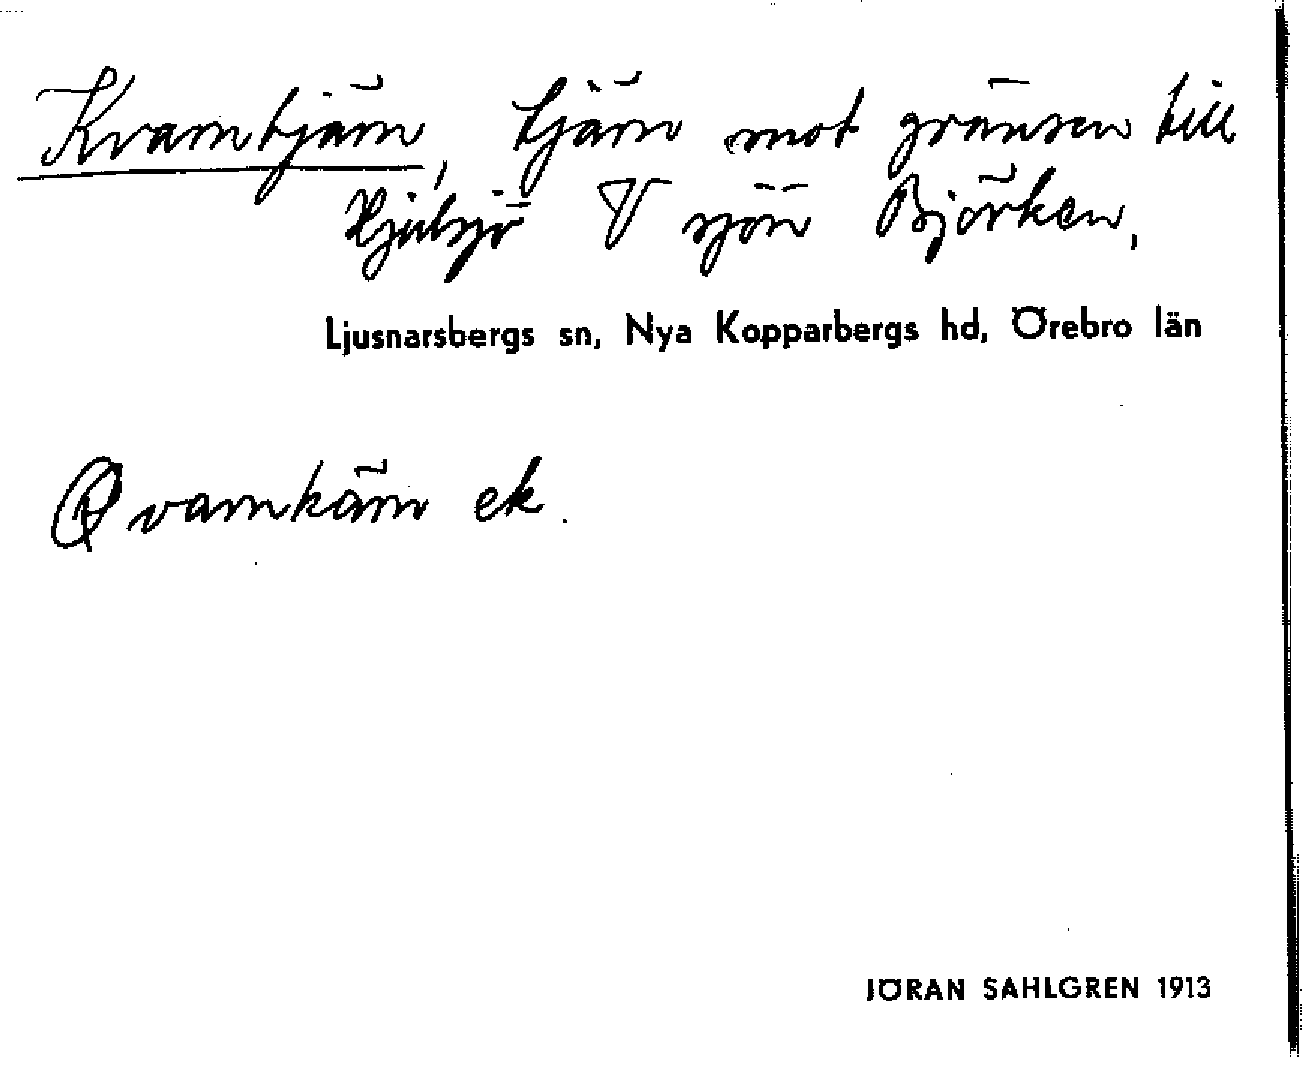 Kvarntjärn, tjärn mot gränsen till
Hjulsjö V sjön Björken,
Ljusnarsbergs sn, Nya Kopparbergs hd, Örebro län
Qvarnkärn ek.
JÖRAN SAHLGREN 1913